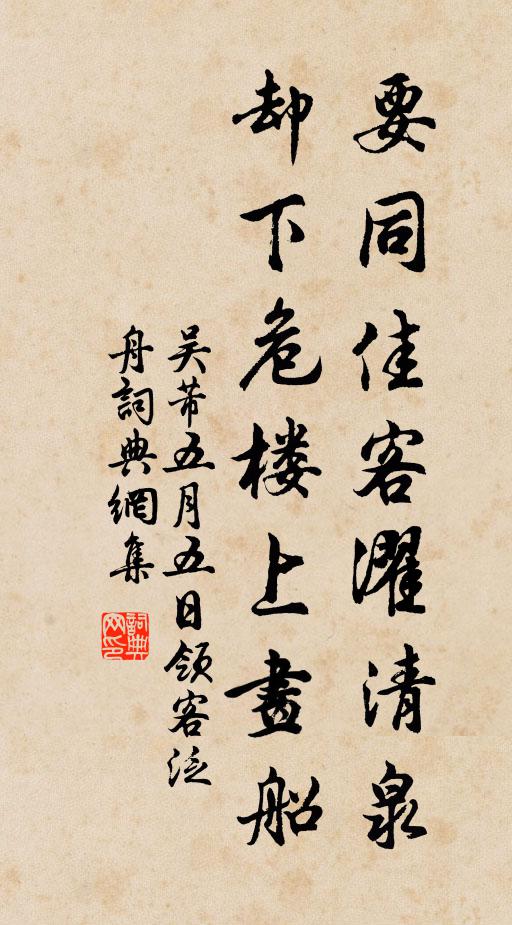 要同佳客濯清泉
却下危楼上畫船
吴芾五月五日領客泛
舟詞典網集
詞典
网印